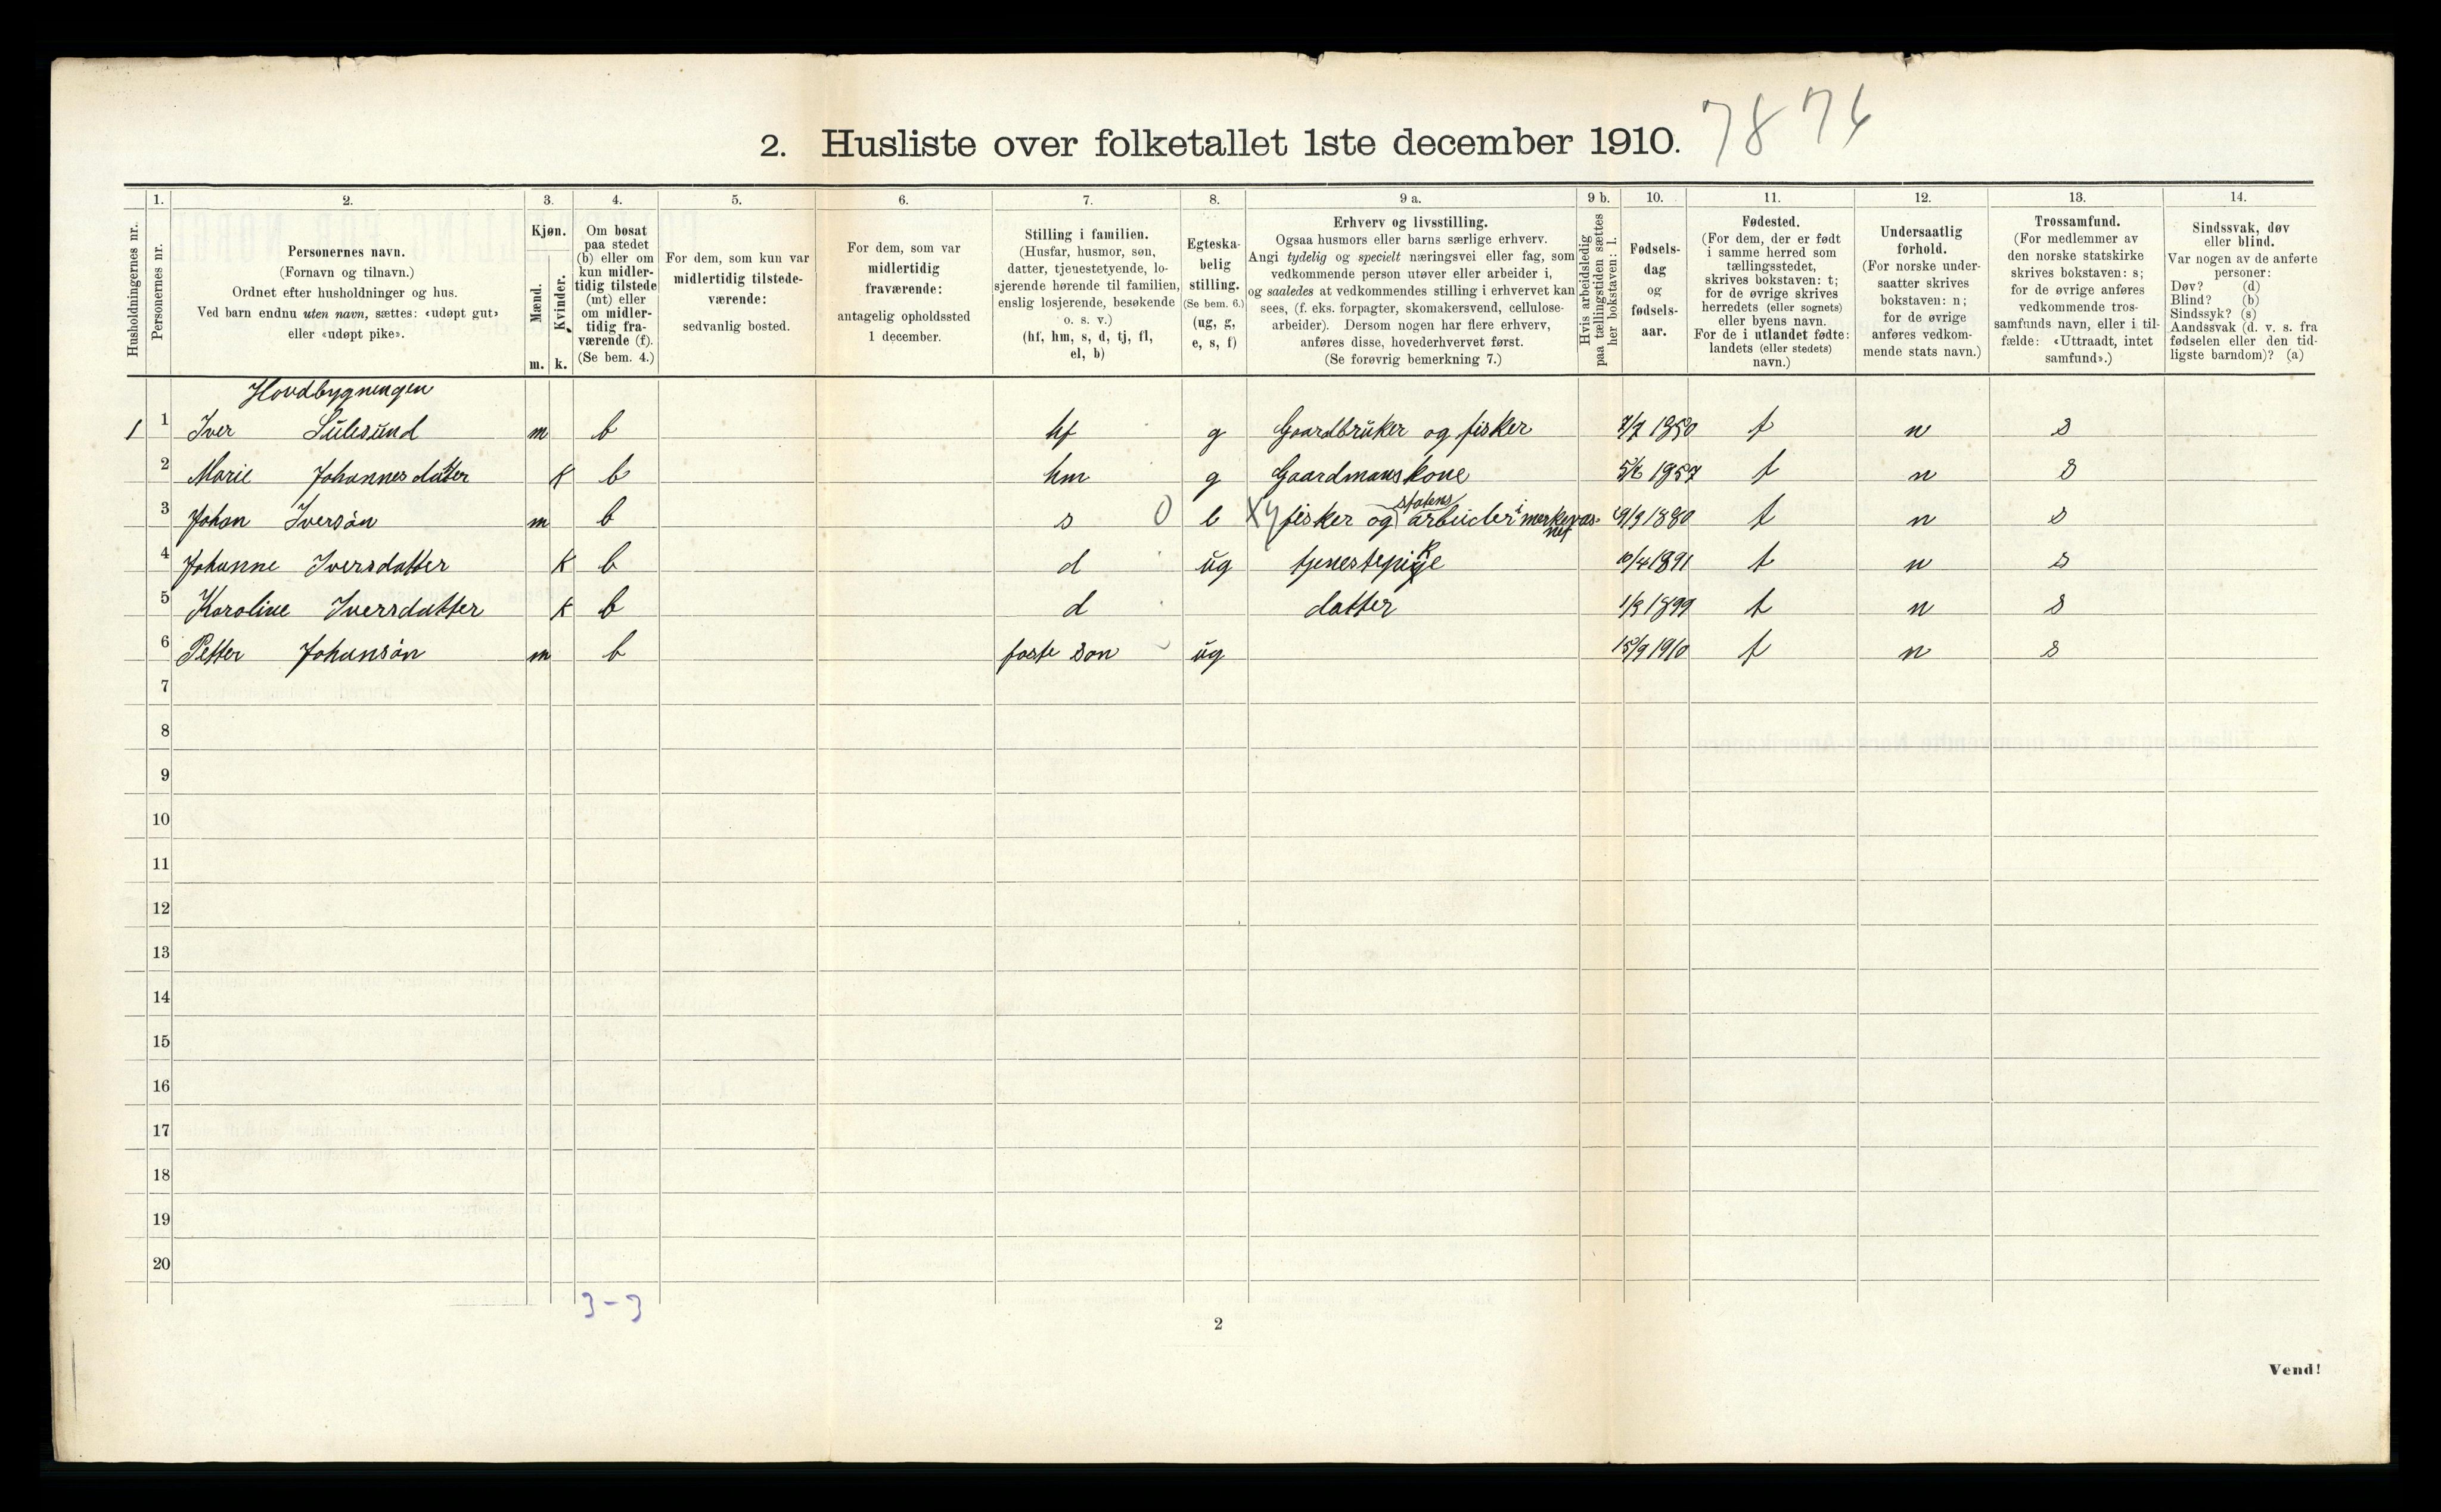 7876
2. Husliste over folketallet 1ste december 1910.
Husholdningernes nr.
1.
Personernes nr.
2.
Personernes navn.
(Fornavn og tilnavn.)
Ordnet efter husholdninger og hus.
Ved barn endnu uten navn, sættes: «udøpt gut»
eller «udøpt pike».
3.
Kjøn.
Mænd.
Kvinder.
m. k.
4.
Om bosat
paa stedet
(b) eller om
kun midler-
tidig tilstede
(mt) eller
om midler-
tidig fra-
værende (f).
(Se bem. 4.)
5.
For dem, som kun var
midlertidig tilstede-
værende:
sedvanlig bosted.
6.
For dem, som var
midlertidig
fraværende:
antagelig opholdssted
1 december.
7.
Stilling i familien.
(Husfar, husmor, søn,
datter, tjenestetyende, lo-
sjerende hørende til familien,
enslig losjerende, besøkende
o. s. v.)
(hf, hm, s, d, tj, fl,
el, b)
8.
Egteska-
belig
stilling.
(Se bem. 6.)
(ug, g,
e, s, f)
9 a.
Erhverv og livsstilling.
Ogsaa husmors eller barns særlige erhverv.
Angi tydelig og specielt næringsvei eller fag, som
vedkommende person utøver eller arbeider i,
og saaledes at vedkommendes stilling i erhvervet kan
sees, (f. eks. forpagter, skomakersvend, cellulose-
arbeider). Dersom nogen har flere erhverv,
anføres disse, hovederhvervet først.
(Se forøvrig bemerkning 7.)
9 b.
Hvis arbeidsledig
paa tællingstiden sættes
her bokstaven: l.
10.
Fødsels-
dag
og
fødsels-
aar.
11.
Fødested.
(For dem, der er født
i samme herred som
tællingsstedet,
skrives bokstaven: t;
for de øvrige skrives
herredets (eller sognets)
eller byens navn.
For de i utlandet fødte:
landets (eller stedets)
navn.)
12.
Undersaatlig
forhold.
(For norske under-
saatter skrives
bokstaven: n;
for de øvrige
anføres vedkom-
mende stats navn.)
13.
Trossamfund.
(For medlemmer av
den norske statskirke
skrives bokstaven: s;
for de øvrige anføres
vedkommende tros-
samfunds navn, eller i til-
fælde: «Uttraadt, intet
samfund».)
14.
Sindssvak, døv
eller blind.
Var nogen av de anførte
personer:
Døv? (d)
Blind? (b)
Sindssyk? (s)
Aandssvak (d. v. s. fra
fødselen eller den tid-
ligste barndom)? (a)
Hovdbygningen
1 1 Iver Sulesund m b hf g Gaardbruker og fisker 7/7 1850 t n s
2 Marie Johannesdatter k b hm g Gaardmanskone 1857 t n s
3 Johan Iversön m b s 0 e Xy fisker og statens arbeider i 1880 t n s
4 Johanne Iversdatter k b d ug tjenestepike 10/4 1891 t n s
5 Karoline Iversdatter k b d datter 1899 t n s
6 Petter Johansön m b foste son ug 15/9 1910 t n s
7
8
9
10
11
12
13
14
15
16
17
18
19
20
3-3
2
Vend!